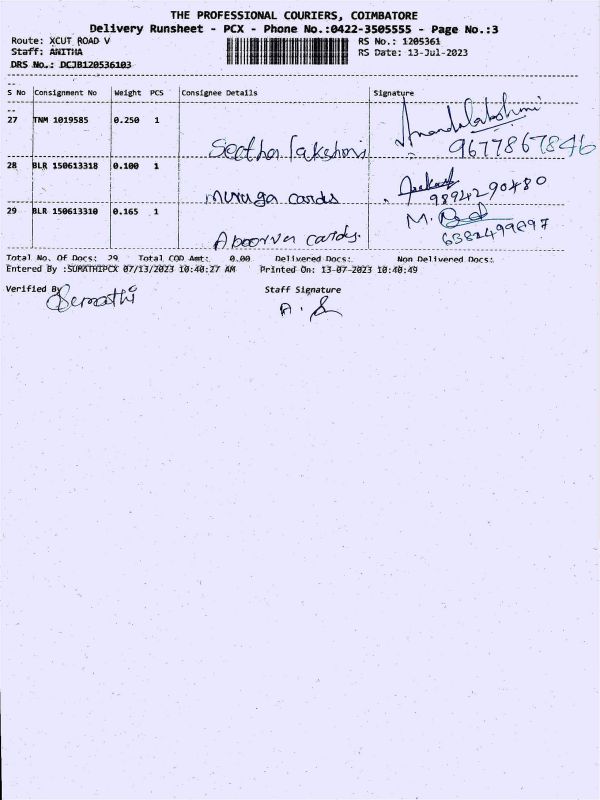 THE PROFESSIONAL COURIERS, COIMBATORE
Delivery Runsheet - PCX - Phone No.:0422-3505555 - Page No.:3
Route: XCUT ROAD V RS No.: 1205361
Staff: ANITHA RS Date: 13-Jul-2023
DRS No.: DCJB120536103
S No Consignment No Weight PCS Consignee Details Signature
27 TNM 1019585 0.250 1 Anandalakshmi
Seetha lakshmi 9677867846
28 BLR 150613318 0.100 1
Muruga cards 9894290480
29 BLR 150613310 0.165 1 M.
Aboorva cards. 6382499897
Total No. Of Docs: 29 Total COD Amt: 0.00 Delivered Docs: Non Delivered Docs:
Entered By :SUMATHIPCX 07/13/2023 10:40:27 AM Printed On: 13-07-2023 10:40:49
Verified By Staff Signature
Sumathi A.